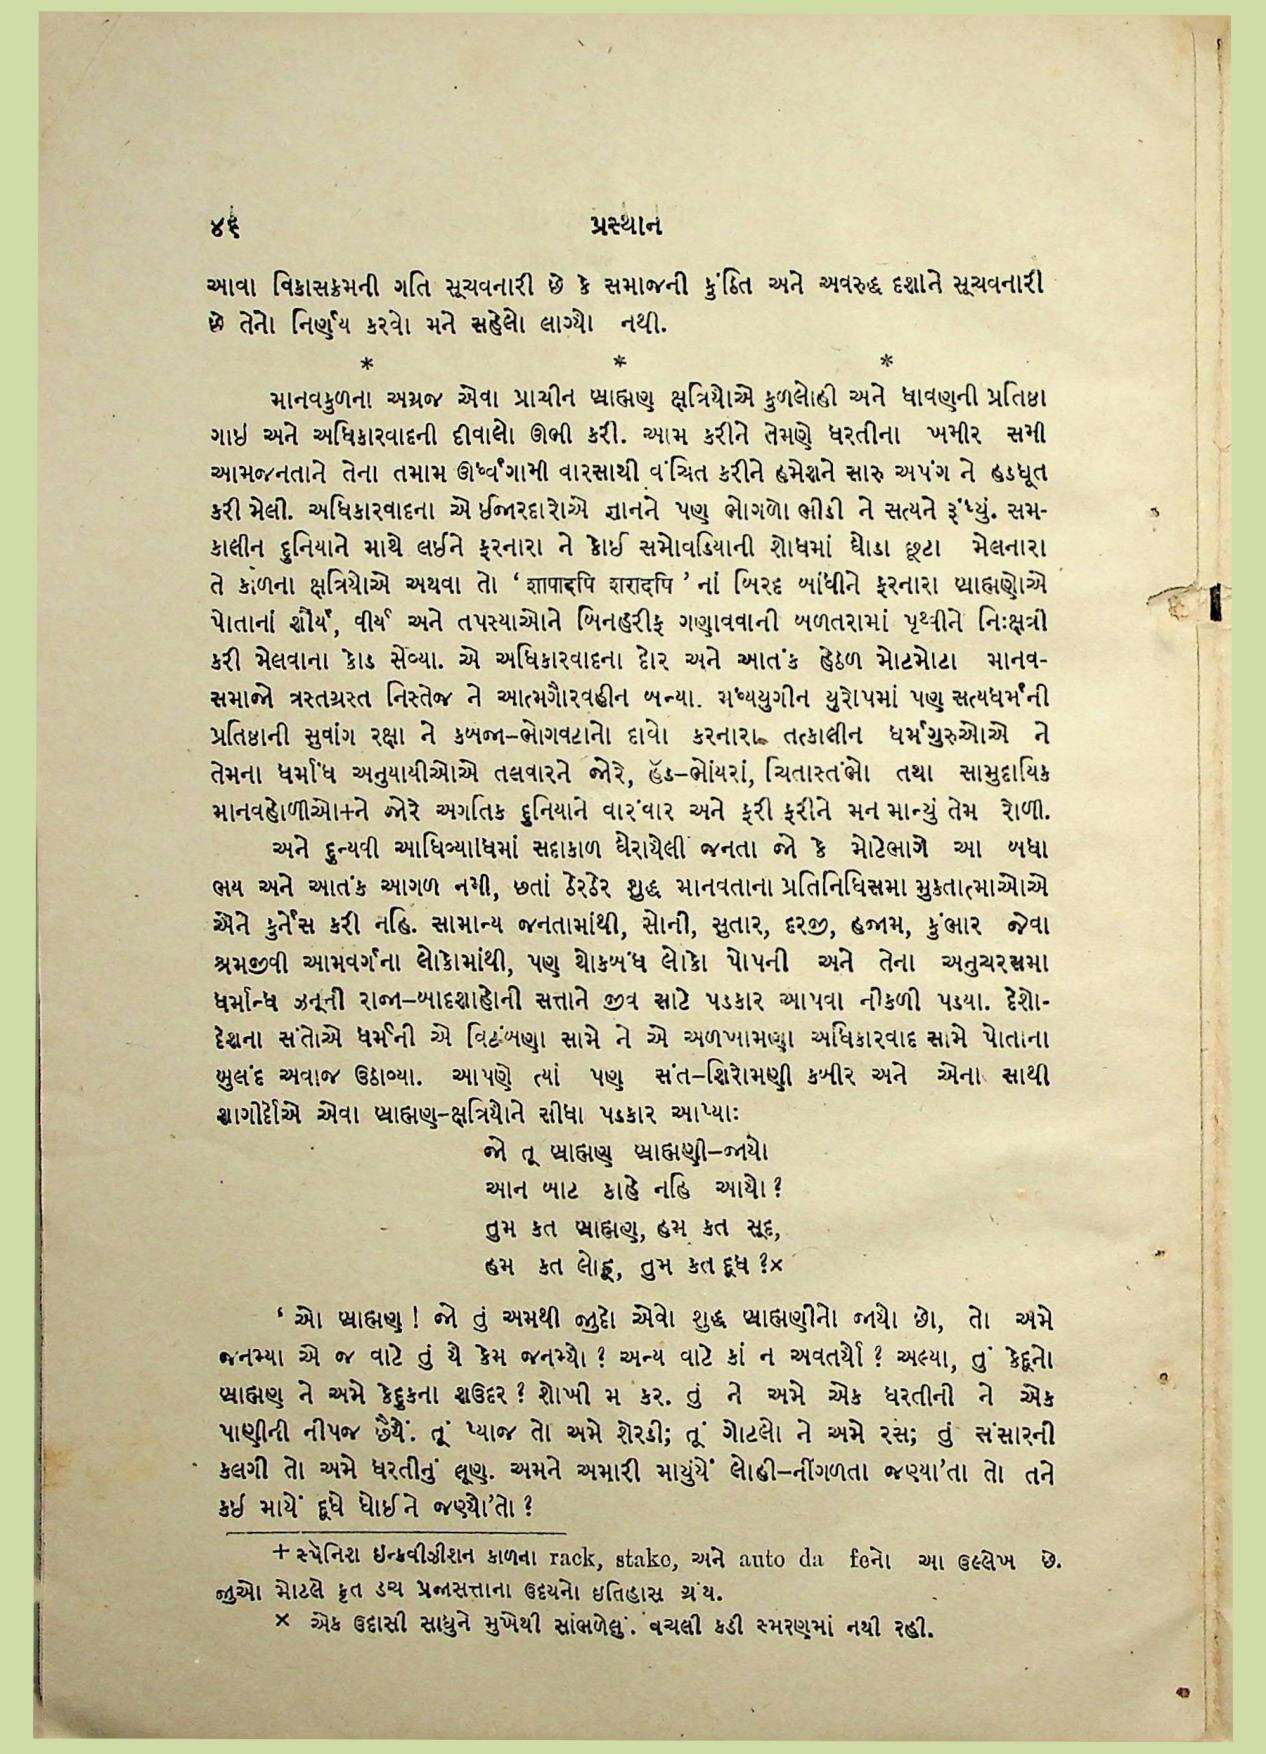 ૪૬ પ્રસ્થાન
આવા વિકાસક્રમની ગતિ સૂચવનારી છે કે સમાજની કુંઠિત અને અવરુદ્ધ દશાને સૂચવનારી
છે તેનો નિર્ણય કરવો મને સહેલો લાગ્યો નથી.
* * *
માનવકુળના અગ્રજ એવા પ્રાચીન બ્રાહ્મણ ક્ષત્રિયોએ કુળલોહી અને ધાવણની પ્રતિષ્ઠા
ગાઇ અને અધિકારવાદની દીવાલો ઊભી કરી. આમ કરીને તેમણે ધરતીના ખમીર સમી
આમજનતાને તેના તમામ ઊર્ધ્વગામી વારસાથી વંચિત કરીને હમેશને સારુ અપંગ ને હડધૂત
કરી મેલી. અધિકારવાદના એ ઈજારદારોએ જ્ઞાનને પણ ભોગળો ભીડી ને સત્યને રૂંધ્યું. સમ-
કાલીન દુનિયાને માથે લઈને ફરનારા ને કોઈ સમોવડિયાની શોધમાં ઘોડા છૂટા મેલનારા
તે કાળના ક્ષત્રિયોએ અથવા તો ‘ શાપાદપિ शरादपि ’નાં બિરદ બાંધીને ફરનારા બ્રાહ્મણોએ
પોતાનાં શૌર્ય, વીર્ય અને તપસ્યાઓને બિનહરીફ ગણાવવાની બળતરામાં પૃથ્વીને નિઃક્ષત્રી
કરી મેલવાના કોડ સેવ્યા. એ અધિકારવાદના દોર અને આતંક હેઠળ મોટમોટા માનવ-
સમાજો ત્રસ્તગ્રસ્ત નિસ્તેજ ને આત્મગૌરવહીન બન્યા. મધ્યયુગીન યુરોપમાં પણ સત્યધર્મની
પ્રતિષ્ઠાની સુવાંગ રક્ષા ને કબજા–ભોગવટાનો દાવો કરનારા તત્કાલીન ધર્મગુરુઓએ ને
તેમના ધર્માંધ અનુયાયીઓએ તલવારને જોરે, હૅડ–ભોંયરાં, ચિતાસ્તંભો તથા સામુદાયિક
માનવહોળીઓ+ને જોરે અગતિક દુનિયાને વારંવાર અને ફરી ફરીને મન માન્યું તેમ રોળી.
અને દુન્યવી આધિવ્યાધિમાં સદાકાળ ઘેરાયેલી જનતા જો કે મોટેભાગે આ બધા
ભય અને આતંક આગળ નમી, છતાં ઠેરઠેર શુદ્ધ માનવતાના પ્રતિનિધિસમા મુકતાત્માઓએ
એને કુર્નેસ કરી નહિ. સામાન્ય જનતામાંથી, સોની, સુતાર, દરજી, હજામ, કુંભાર જેવા
શ્રમજીવી આમવર્ગના લોકોમાંથી, પણ થોકબંધ લોકો પોપની અને તેના અનુચરસમા
ધર્માન્ધ ઝનૂની રાજા–બાદશાહોની સત્તાને જીવ સાટે પડકાર આપવા નીકળી પડયા. દેશો-
દેશના સંતોએ ધર્મની એ વિટંબણા સામે ને એ અળખામણા અધિકારવાદ સામે પોતાના
બુલંદ અવાજ ઉઠાવ્યા. આપણે ત્યાં પણ સંત–શિરોમણી કબીર અને એના સાથી
શાગીર્દોએ એવા બ્રાહ્મણ–ક્ષત્રિયોને સીધા પડકાર આપ્યાઃ
જો તૂ બ્રાહ્મણ બ્રાહ્મણી–જાયો
આન બાટ કાહે નહિ આયો ?
તુમ કત બ્રાહ્મણ, હમ કત સૂદ,
હમ કત લોહૂ, તુમ કત દૂધ ?×
‘ ઓ બ્રાહ્મણ ! જો તું અમથી જુદો એવો શુદ્ધ બ્રાહ્મણીનો જાયો છો, તો અમે
જનમ્યા એ જ વાટે તું યે કેમ જનમ્યો ? અન્ય વાટે કાં ન અવતર્યો ? અલ્યા, તું કેદૂનો
બ્રાહ્મણ ને અમે કેદુકના શઉદર ? શોખી મ કર. તું ને અમે એક ધરતીની ને એક
પાણીની નીપજ છૈયેં. તૂં પ્યાજ તો અમે શેરડી; તૂં ગોટલો ને અમે રસ; તું સંસારની
કલગી તો અમે ધરતીનું લૂણ. અમને અમારી માયુંયેં લોહી–નીંગળતા જણ્યા’તા તો તને
કઈ માયેં દૂધે ધોઈને જણ્યો’તો ?
+ સ્પેનિશ ઇન્ક્વીઝીશન કાળના rack, stake, અને auto da feનો આ ઉલ્લેખ છે.
જુઓ મોટલે કૃત ડચ પ્રજાસત્તાના ઉદયનો ઇતિહાસ ગ્રંથ.
× એક ઉદાસી સાધુને મુખેથી સાંભળેલું. વચલી કડી સ્મરણમાં નથી રહી.